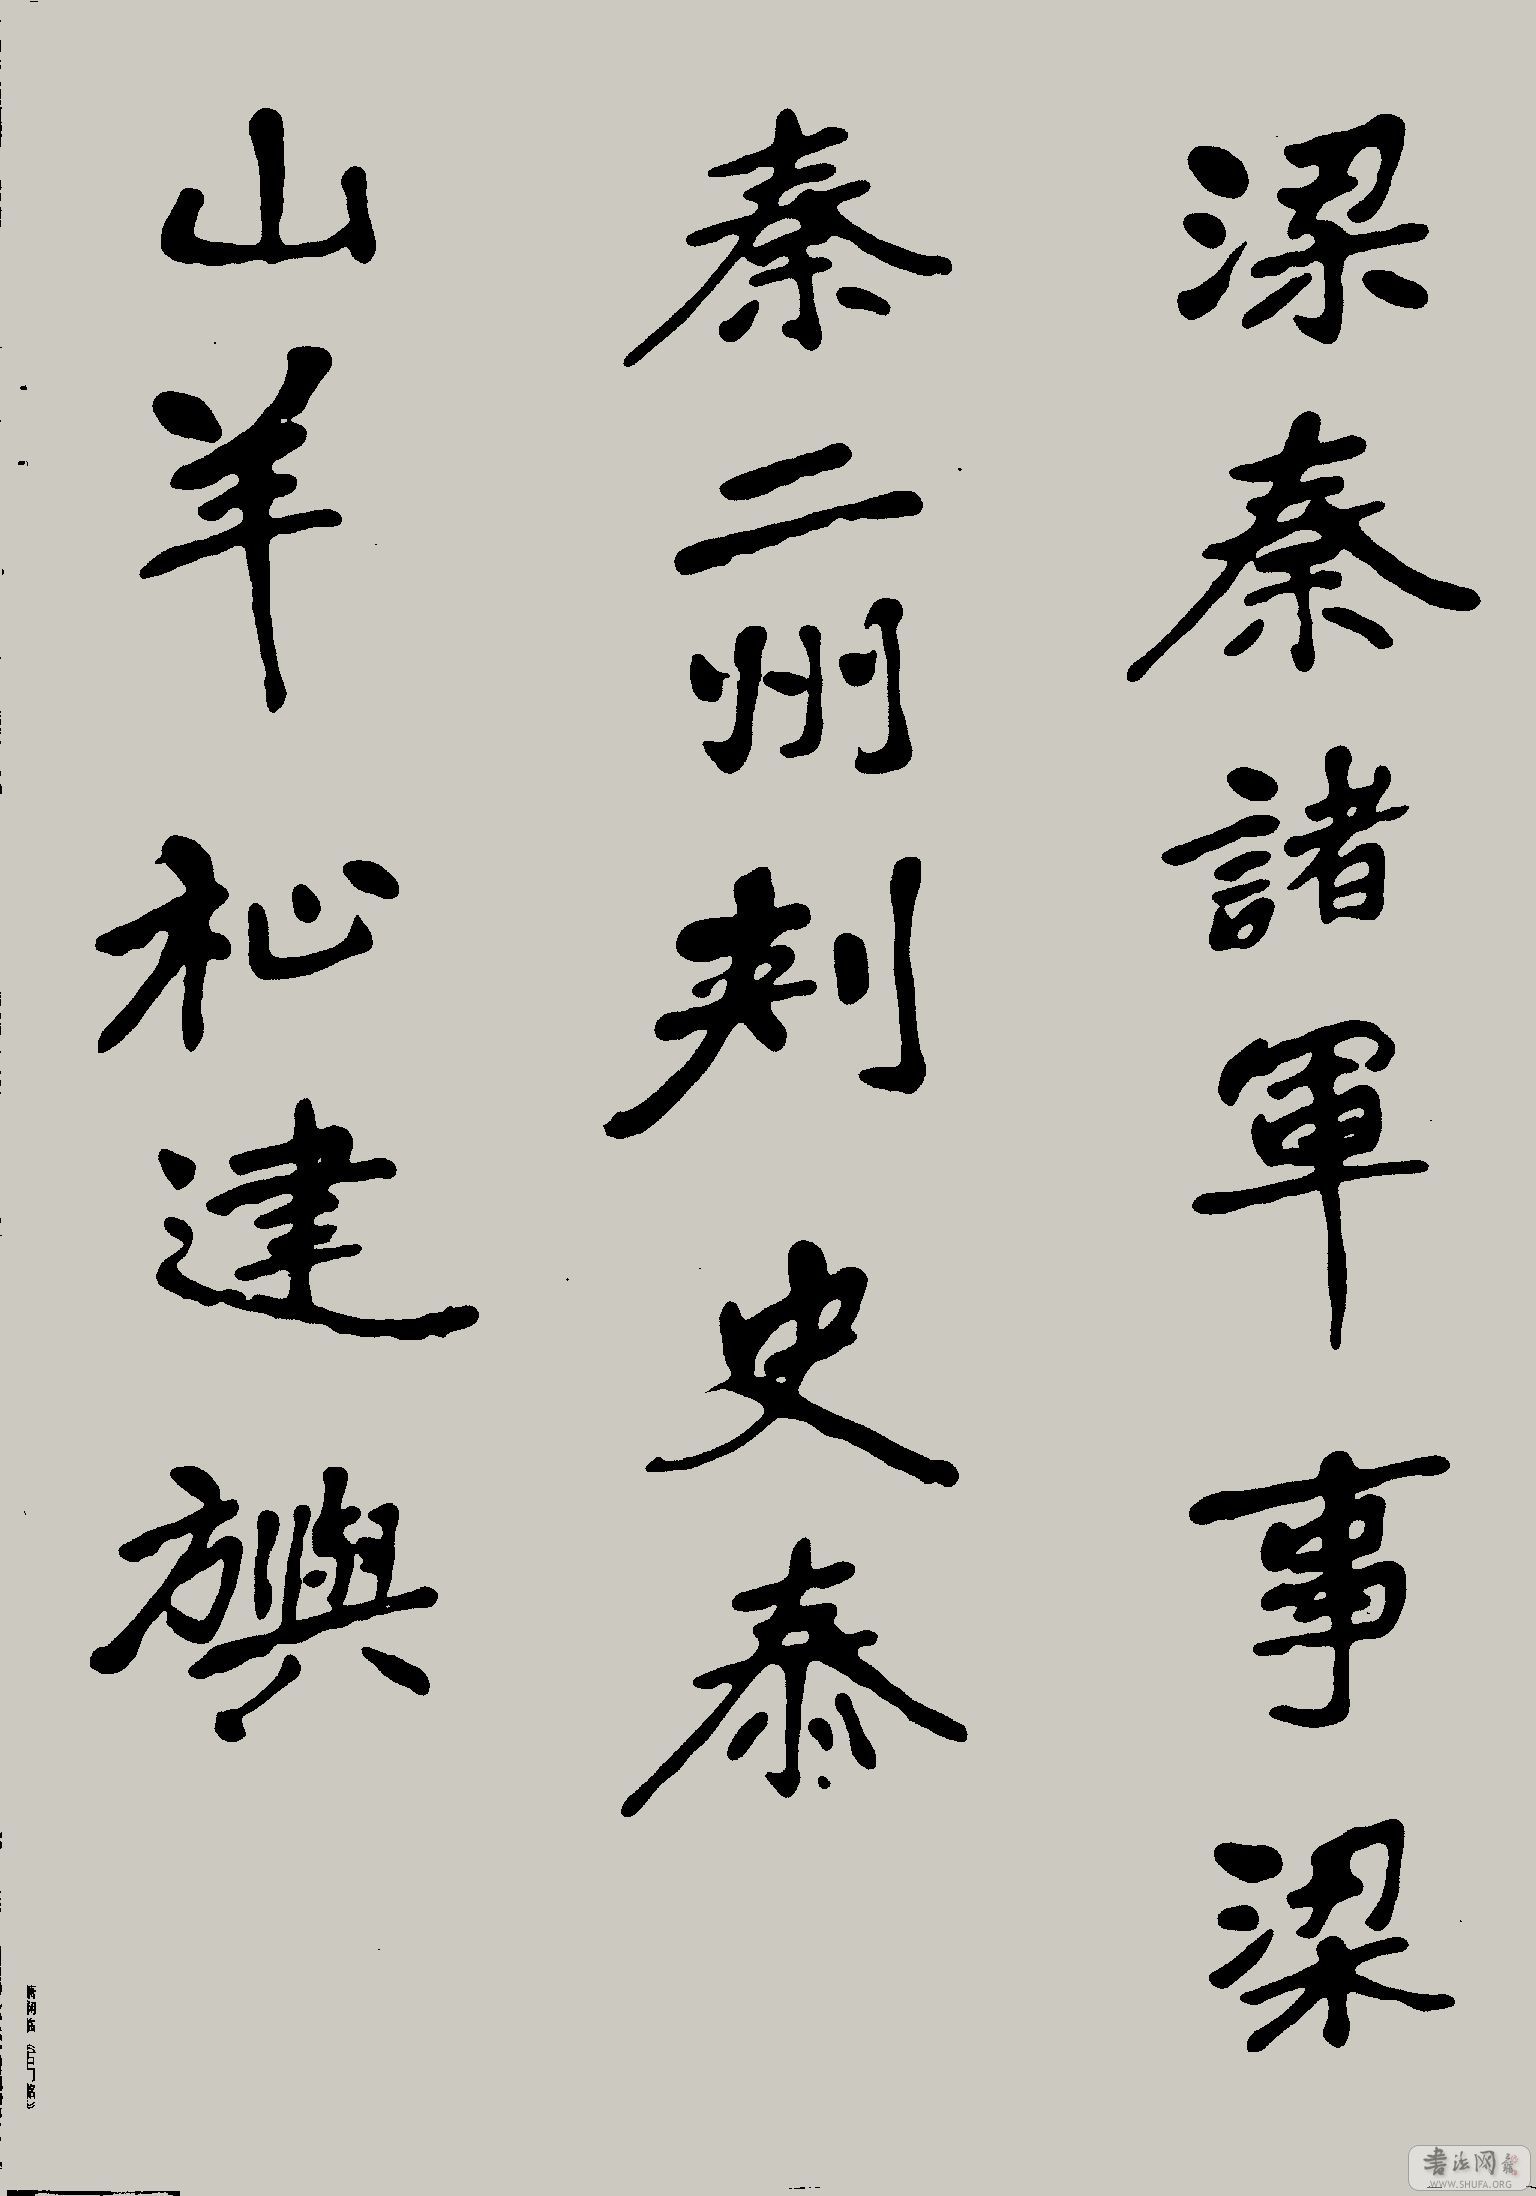 梁秦諸軍事梁
秦二州刺史泰
山羊祉建旟
萧娴临《石门铭》
書法网
WWW.SHUFA.ORG